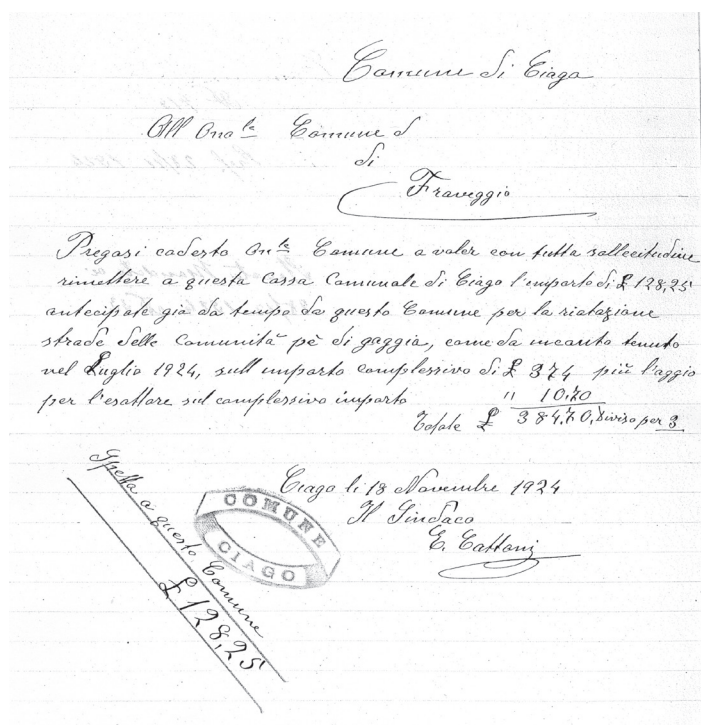 Comune di Ciago
All'Ono.le Comune d
di
Fraveggio
Pregasi codesto On.le Comune a voler con tutta sollecitudine
rimettere a questa Cassa Comunale di Ciago l'importo di £ 128,25
antecipate già da tempo da questo Comune per la riatazione
strade delle Comunità pè di gaggia, come da incanto tenuto
nel Luglio 1924, sull'importo complessivo di £ 374 più l'aggio
per l'esattore sul complessivo importo " 10,70
Totale £ 384,70, diviso per 3
Ciago li 18 Novembre 1924
Il Sindaco
E. Cattoni
COMUNE
CIAGO
Spetta a questo Comune
£ 128,25